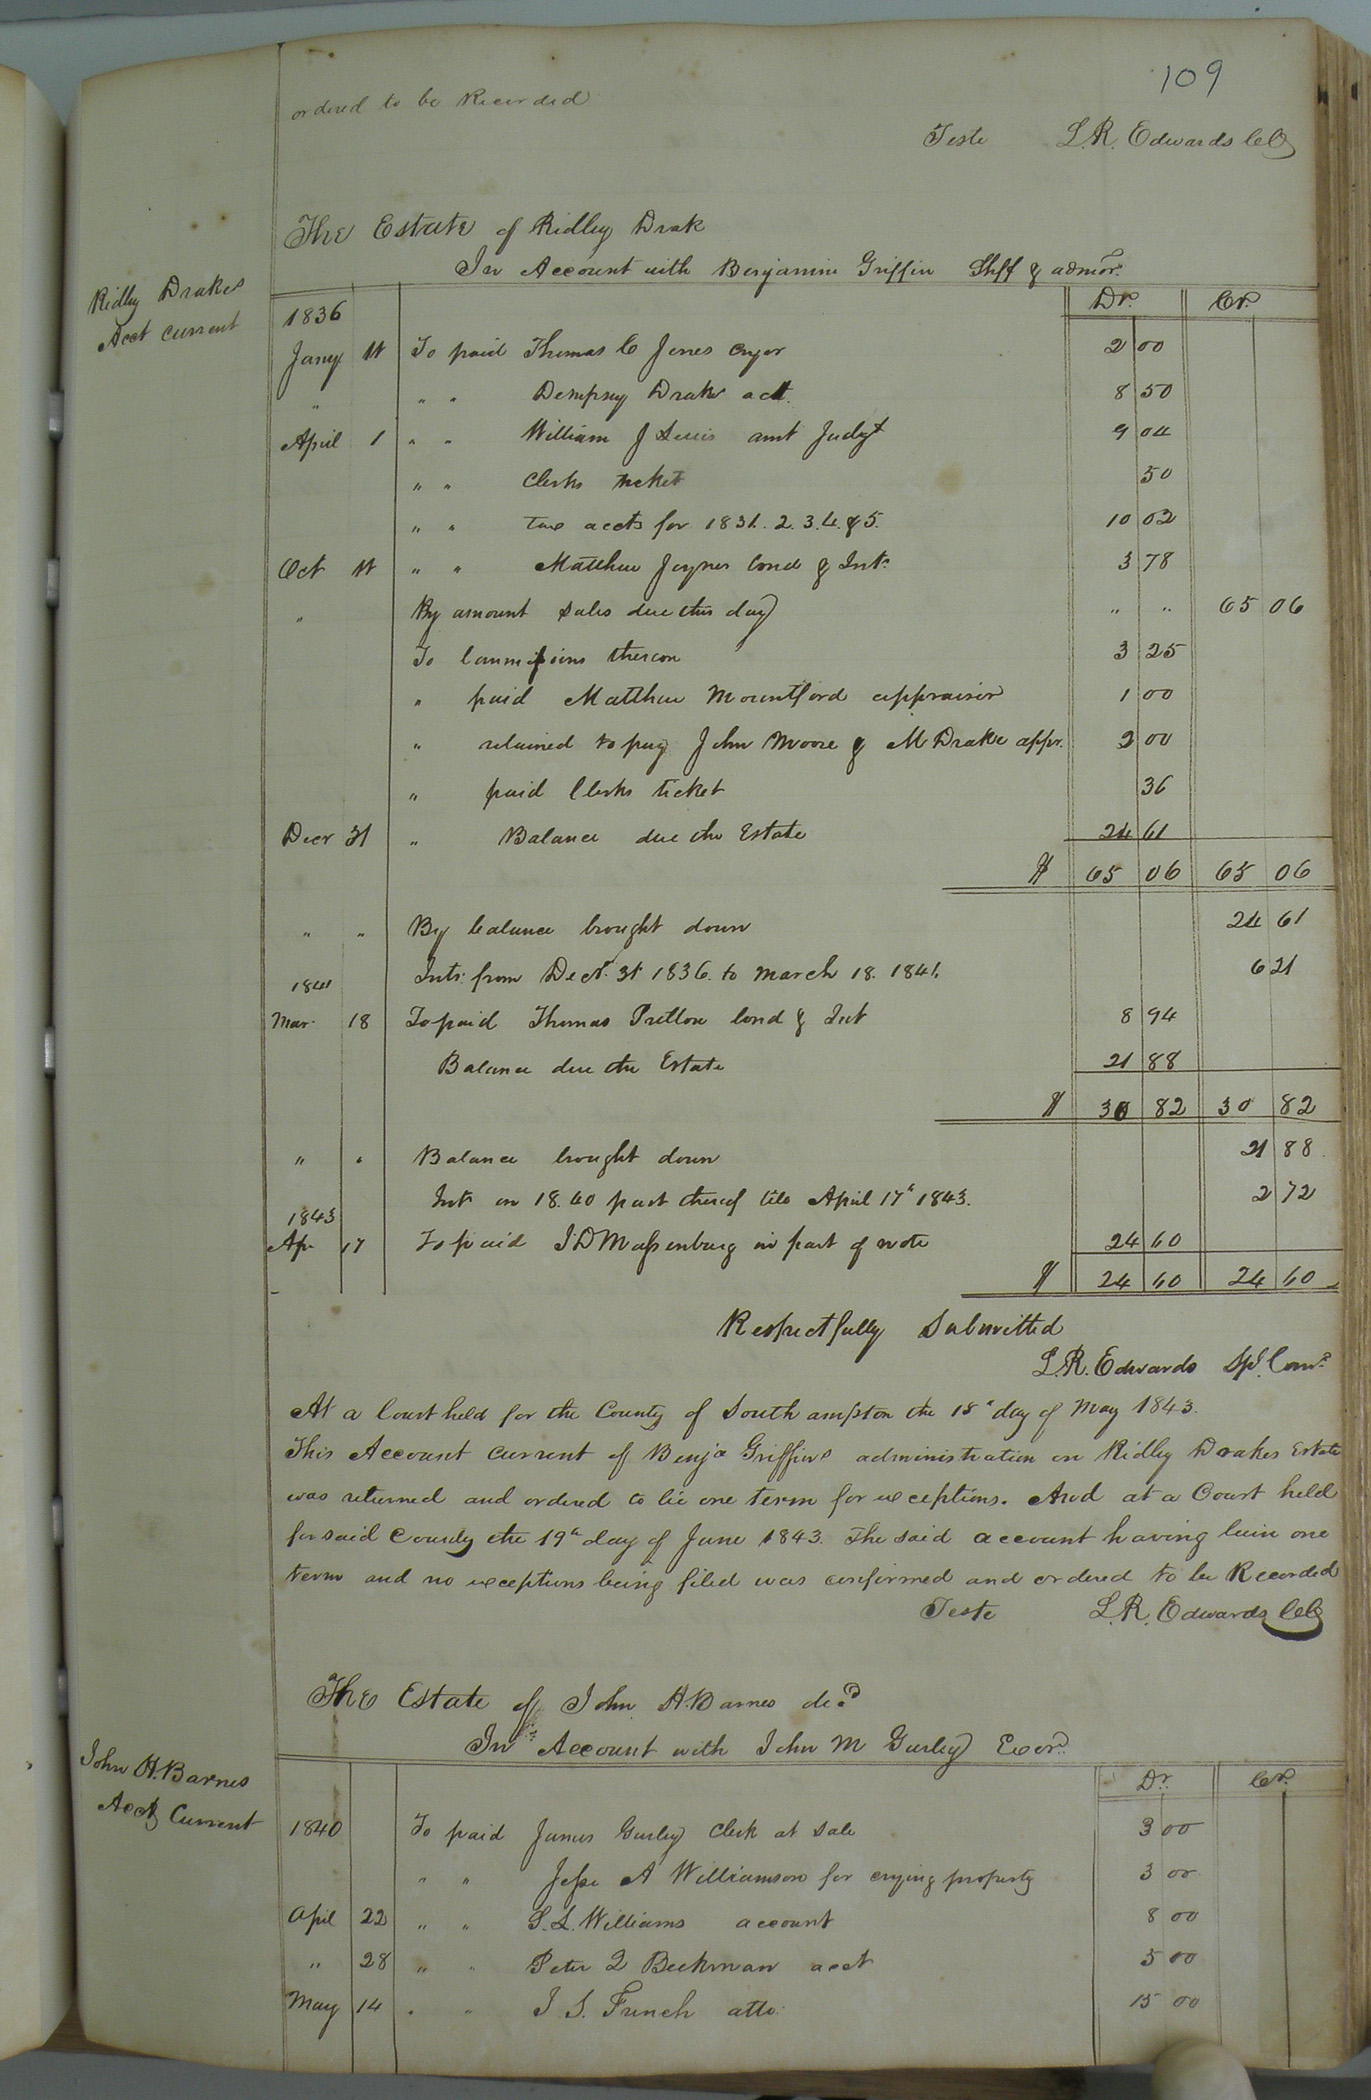 109
ordered to be Recorded
Teste L.R. Edwards CC
The Estate of Ridley Drak
In Account with Benjamin Griffin Shff & admor.
Ridley Drakes
Acct current
Dr. Cr.
1836
Jany 1st To paid Thomas C Jones cryer 2 00
" " " Dempsey Drake act. 8 50
April 1 " " William J amt Judgt 9 04
" " Clerks ticket 50
" " Tax accts for 1831. 2. 3. 4. & 5. 10 02
Oct 1st " " Matthew Joyner bond & Int. 3 78
" By amount Sales due this day " " 65 06
To Commissions thereon 3 25
" paid Matthew Mountford appraiser 1 00
" retained to pay John Moore & M Drake appr. 2 00
" paid Clerks ticket 36
Decr 31 " Balance due the Estate 24 61
$ 65 06 65 06
" " By balance brought down 24 61
Ints. from Decr. 31 1836. to March 18. 1841. 6 21
1841
Mar. 18 To paid Thomas Pretlow bond & Int 8 94
Balance due the Estate 21 88
$ 30 82 30 82
" " Balance brought down 21 88
Int on 18.60 part thereof till April 17th 1843. 2 72
1843
Ap 17 To paid J D Massenburg in part of note 24 60
$ 24 60 24 60
Respectfully Submitted
L.R. Edwards Spl. Comr.
At a Court held for the County of Southampton the 15th day of May 1843.
This Account Current of Benja Griffins administration on Ridley Drakes Estate
was returned and ordered to lie one term for exceptions. And at a Court held
for said County the 19th day of June 1843. The said account having lain one
term and no exceptions being filed was confirmed and ordered to be Recorded
Teste L.R. Edwards CC
The Estate of John A. Barnes decd
In Account with John M Gurley Exor.
John A. Barnes
Acct Current
Dr. Cr.
1840 To paid James Gurley Clerk at Sale 3 00
" " Jesse A Williamson for crying property 3 00
April 22 " " S. L. Williams account 8 00
" 28 " " Peter Beckman acct 5 00
May 14 " " J. S. French atto. 15 00